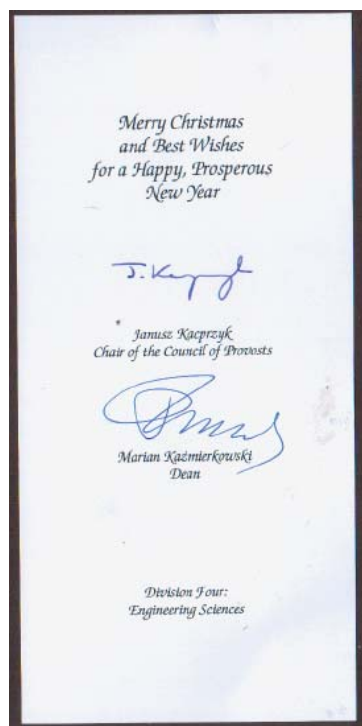 Merry Christmas
and Best Wishes
for a Happy, Prosperous
New Year
J. Kacprzyk
Janusz Kacprzyk
Chair of the Council of Provosts
Marian Kaźmierkowski
Dean
Division Four:
Engineering Sciences